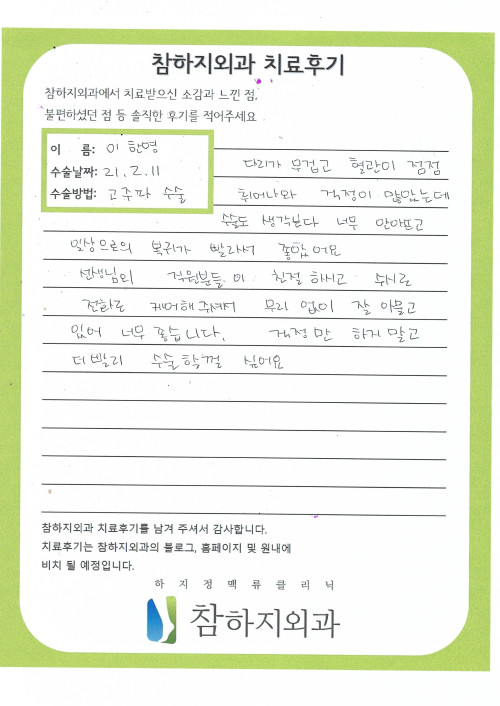 참하지외과 치료후기
참하지외과에서 치료받으신 소감과 느낀 점,
불편하셨던 점 등 솔직한 후기를 적어주세요
이 름: 이한영
수술날짜: 21.2.11
수술방법: 고주파 수술
다리가 무겁고 혈관이 점점
튀어나와 걱정이 많았는데
수술도 생각보다 너무 안아프고
일상으로의 복귀가 빨라서 좋았어요
선생님외 직원분들이 친절하시고 수시로
전화로 케어해주셔서 무리 없이 잘 아물고
있어 너무 좋습니다. 걱정만 하지말고
더 빨리 수술할껄 싶어요
참하지외과 치료후기를 남겨 주셔서 감사합니다.
치료후기는 참하지외과의 블로그, 홈페이지 및 원내에
비치 될 예정입니다.
하지정맥류클리닉
참하지외과